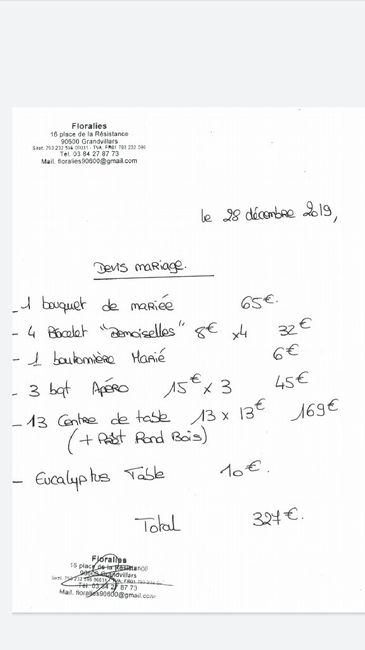 Floralies
16 place de la Résistance
90600 Grandvillars
Tel. 03 84 27 87 73
Mail. floralies90600@gmail.com
le 28 décembre 2019,
Devis mariage.
- 1 bouquet de mariée 65€.
- 4 Bracelet "Demoiselles" 8€ x4 32€
- 1 boutonnière Marié 6€
- 3 bqt Apéro 15€ x 3 45€
- 13 Centre de table 13 x 13€ 169€
(+ Rond Bois)
- Eucalyptus Table 10€.
Total 327€.
Floralies
16 place de la Résistance
90600 Grandvillars
Tel. 03 84 27 87 73
Mail. floralies90600@gmail.com